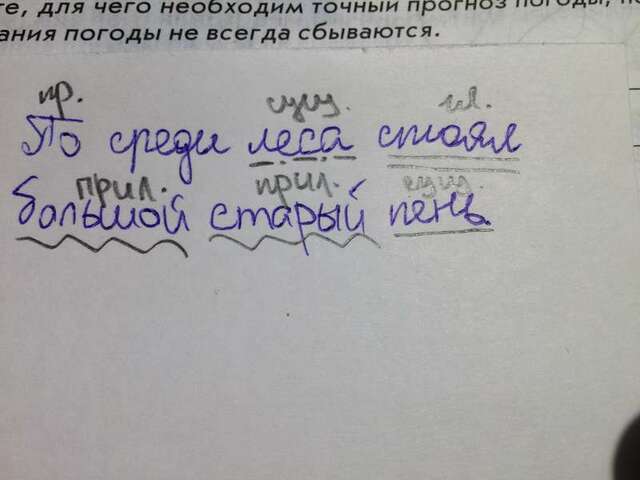 те, для чего необходим точный прогноз погоды,
ания погоды не всегда сбываются.
пр. сущ. гл.
По среди леса стоял
прил. прил. сущ.
большой старый пень